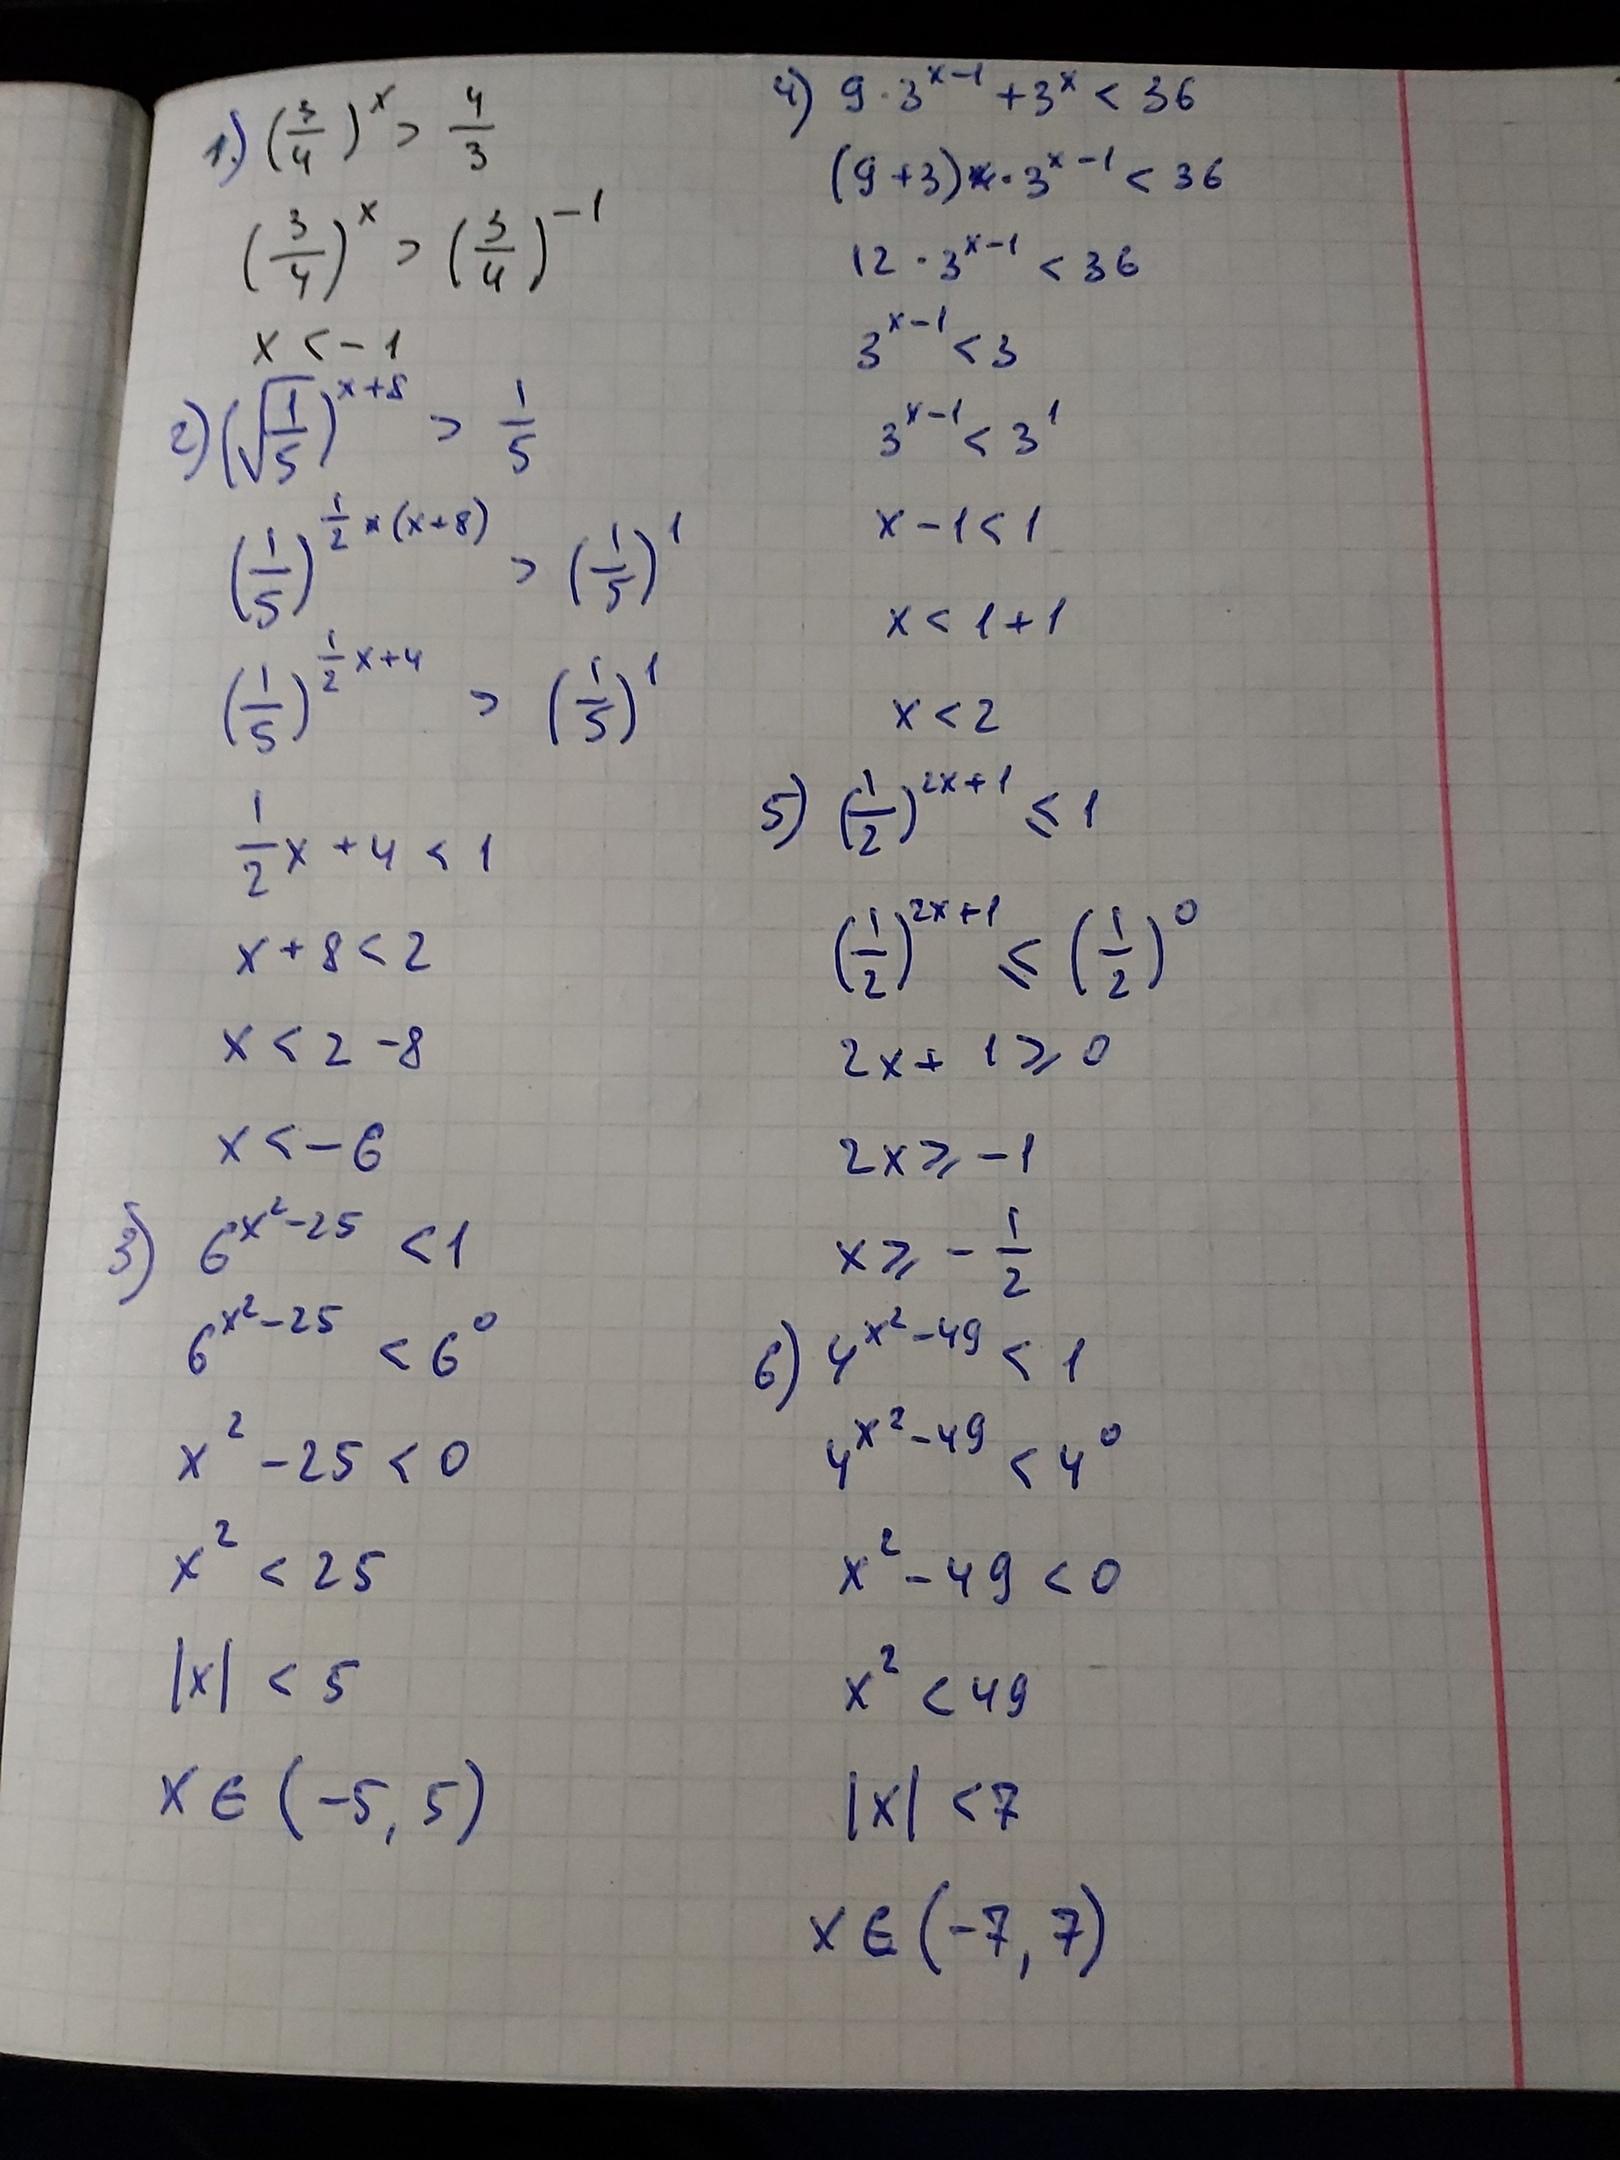 1.) (3/4)^x > 4/3
(3/4)^x > (3/4)^-1
x < -1
2) (√(1/5))^(x+8) > 1/5
(1/5)^(1/2 × (x+8)) > (1/5)^1
(1/5)^(1/2 x+4) > (1/5)^1
1/2 x + 4 < 1
x + 8 < 2
x < 2 - 8
x < - 6
3) 6^(x²-25) < 1
6^(x²-25) < 6^0
x² - 25 < 0
x² < 25
|x| < 5
x ∈ (-5, 5)
4) 9 · 3^(x-1) + 3^x < 36
(9 + 3) · 3^(x-1) < 36
12 · 3^(x-1) < 36
3^(x-1) < 3
3^(x-1) < 3^1
x - 1 < 1
x < 1 + 1
x < 2
5) (1/2)^(2x+1) ⩽ 1
(1/2)^(2x+1) ⩽ (1/2)^0
2x + 1 ⩾ 0
2x ⩾ -1
x ⩾ - 1/2
6) 4^(x²-49) < 1
4^(x²-49) < 4^0
x² - 49 < 0
x² < 49
|x| < 7
x ∈ (-7, 7)